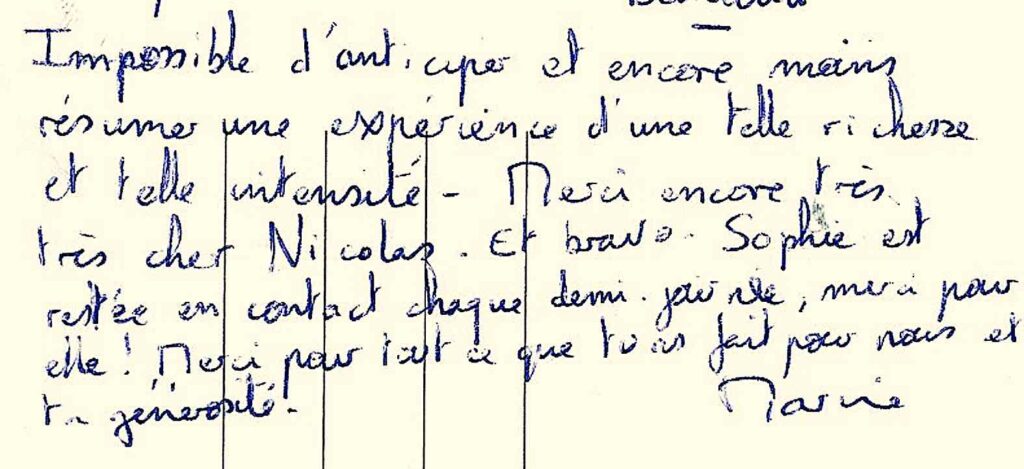 Impossible d'anticiper et encore moins
résumer une expérience d'une telle richesse
et telle intensité - Merci encore très
très cher Nicolas. Et bravo. Sophie est
restée en contact chaque demi-journée, merci pour
elle ! Merci pour tout ce que tu as fait pour nous et
ta générosité.